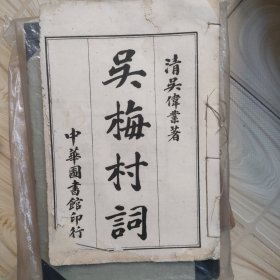 清吳偉業著
吳梅村詞
中華圖書館印行